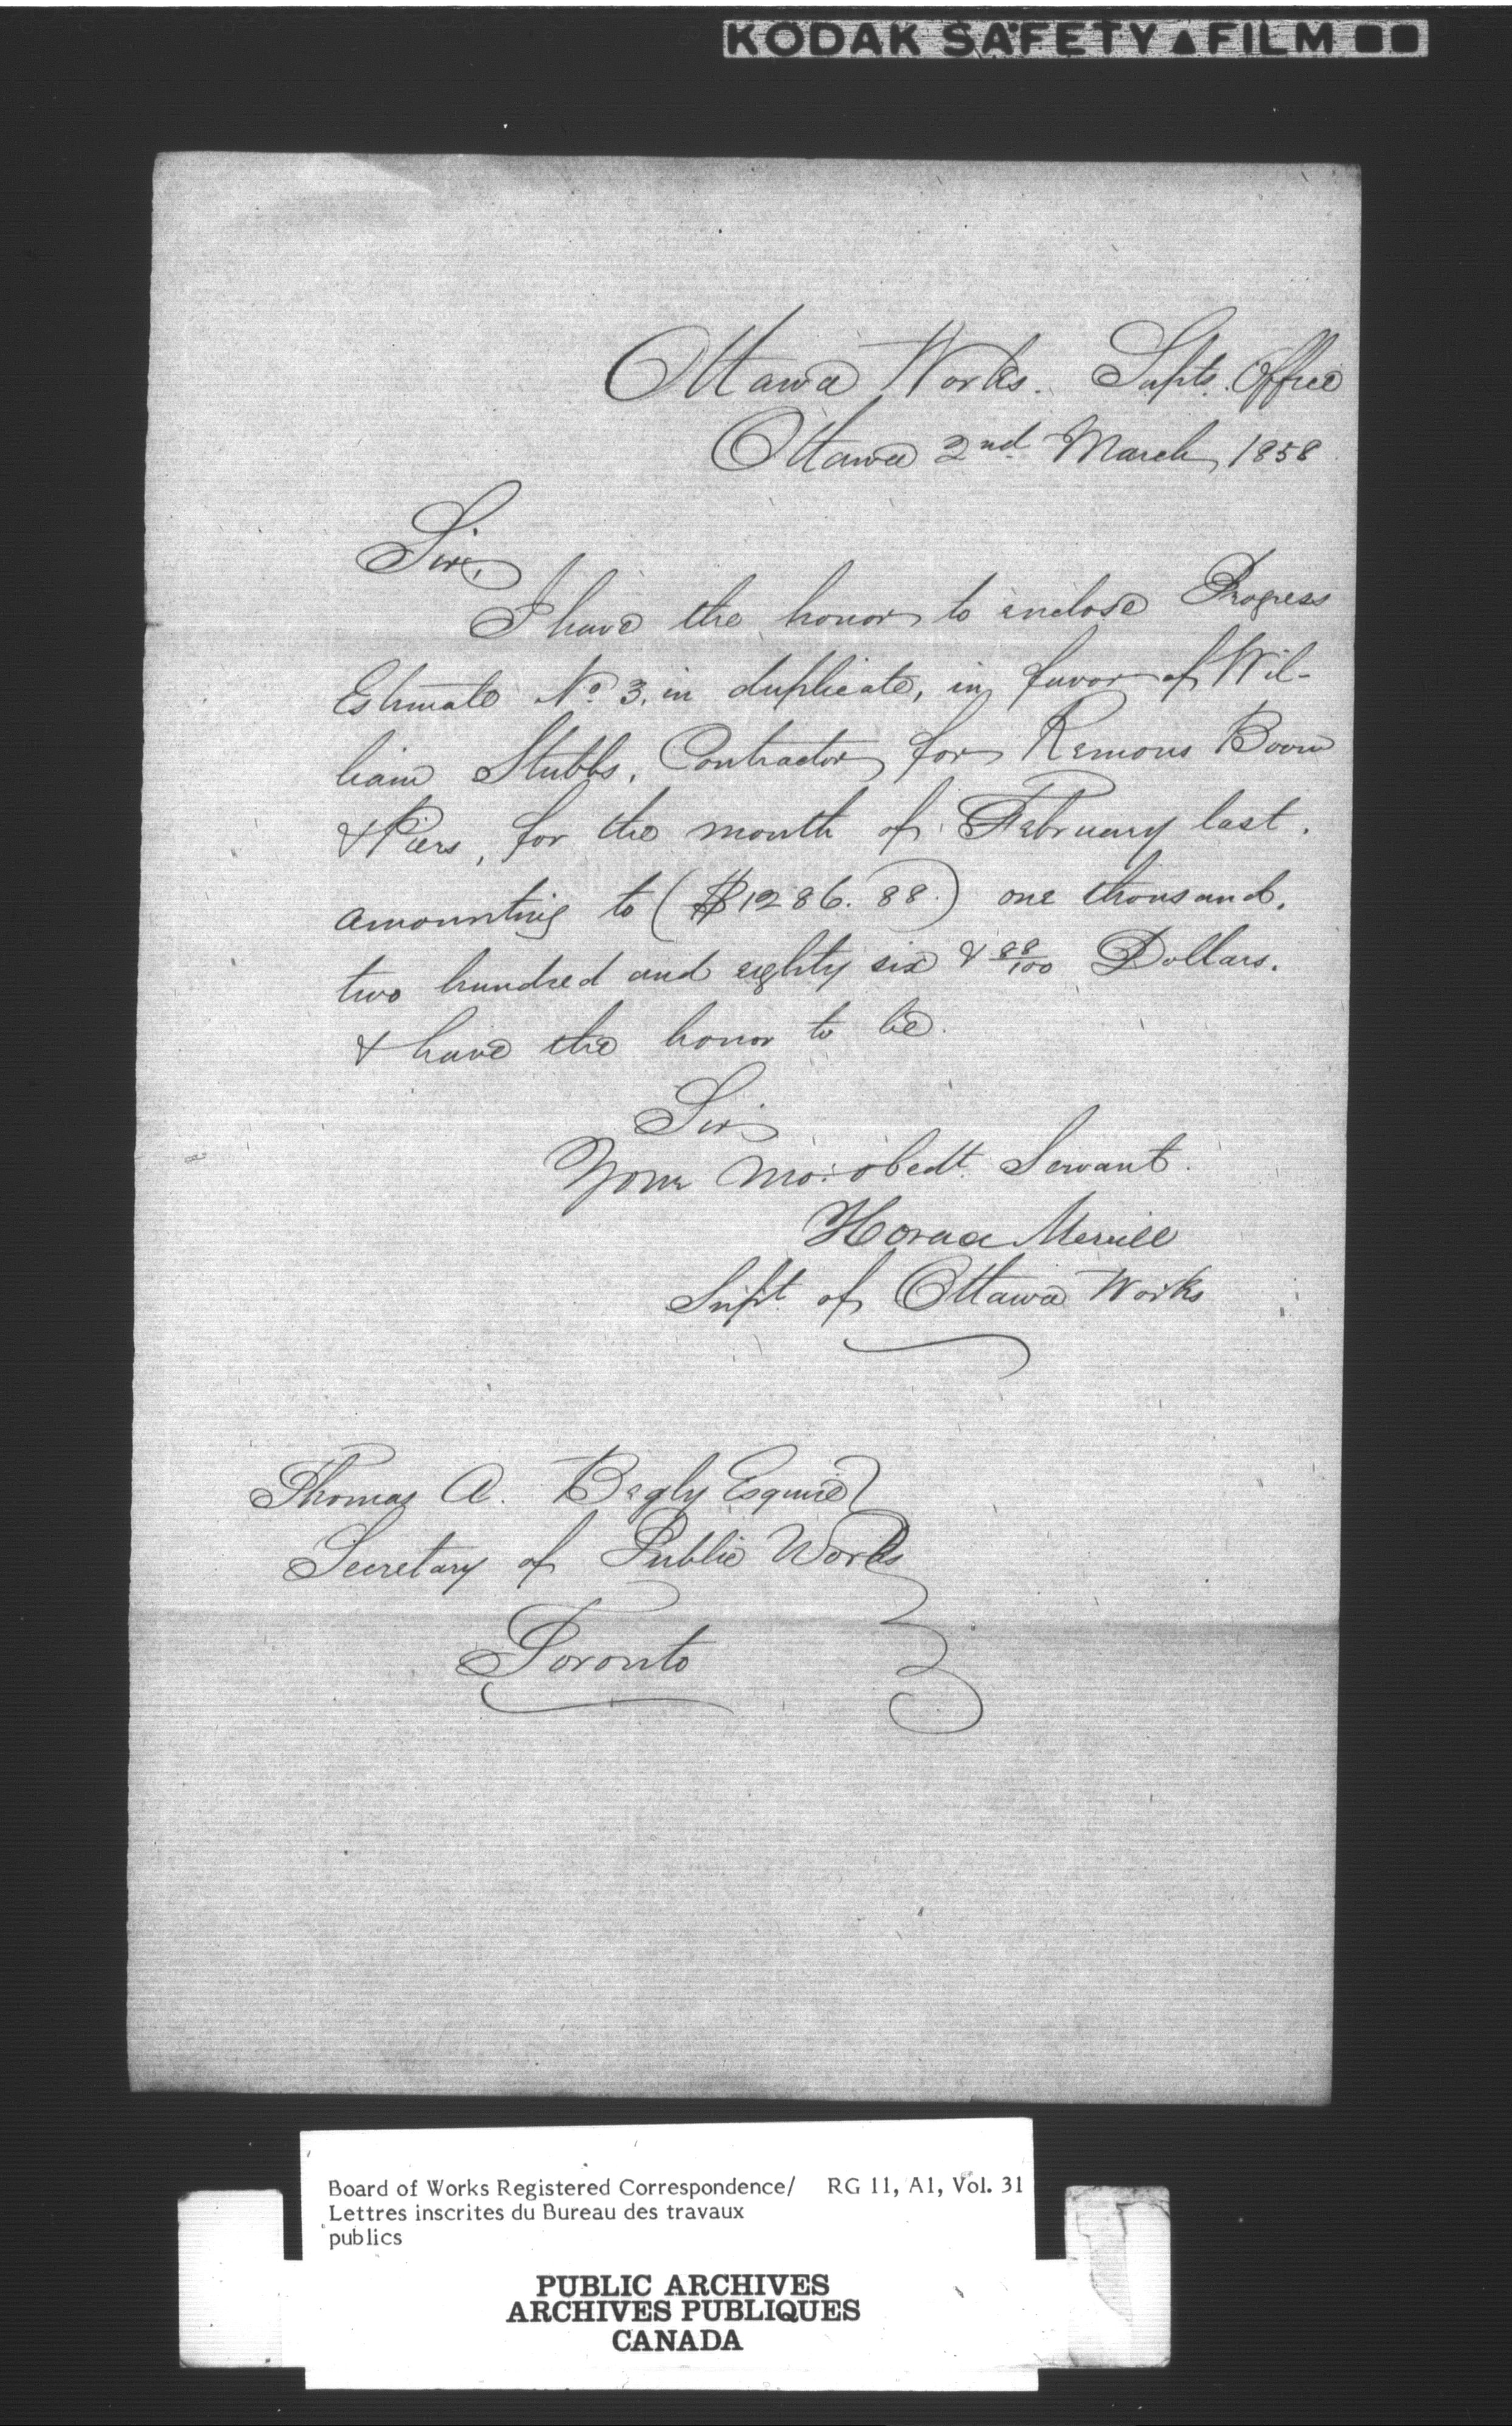 KODAK SAFETY ▲ FILM
Ottawa Works. Supts. Office
Ottawa 2nd March, 1858
Sir,
I have the honor to enclose Progress
Estimate No. 3, in duplicate, in favor of Wil-
liam Stubbs, Contractor for Remous Boom
& Piers, for the month of February last.
amounting to ($1286.88.) one thousand,
two hundred and eighty six & 88/100 Dollars.
& have the honor to be.
Sir
Your mo: obedt. Servant.
Horace Merrill
Supt. of Ottawa Works
Thomas A. Begly Esquire
Secretary of Public Works
Toronto
Board of Works Registered Correspondence/ RG 11, A1, Vol. 31
Lettres inscrites du Bureau des travaux
publics
PUBLIC ARCHIVES
ARCHIVES PUBLIQUES
CANADA